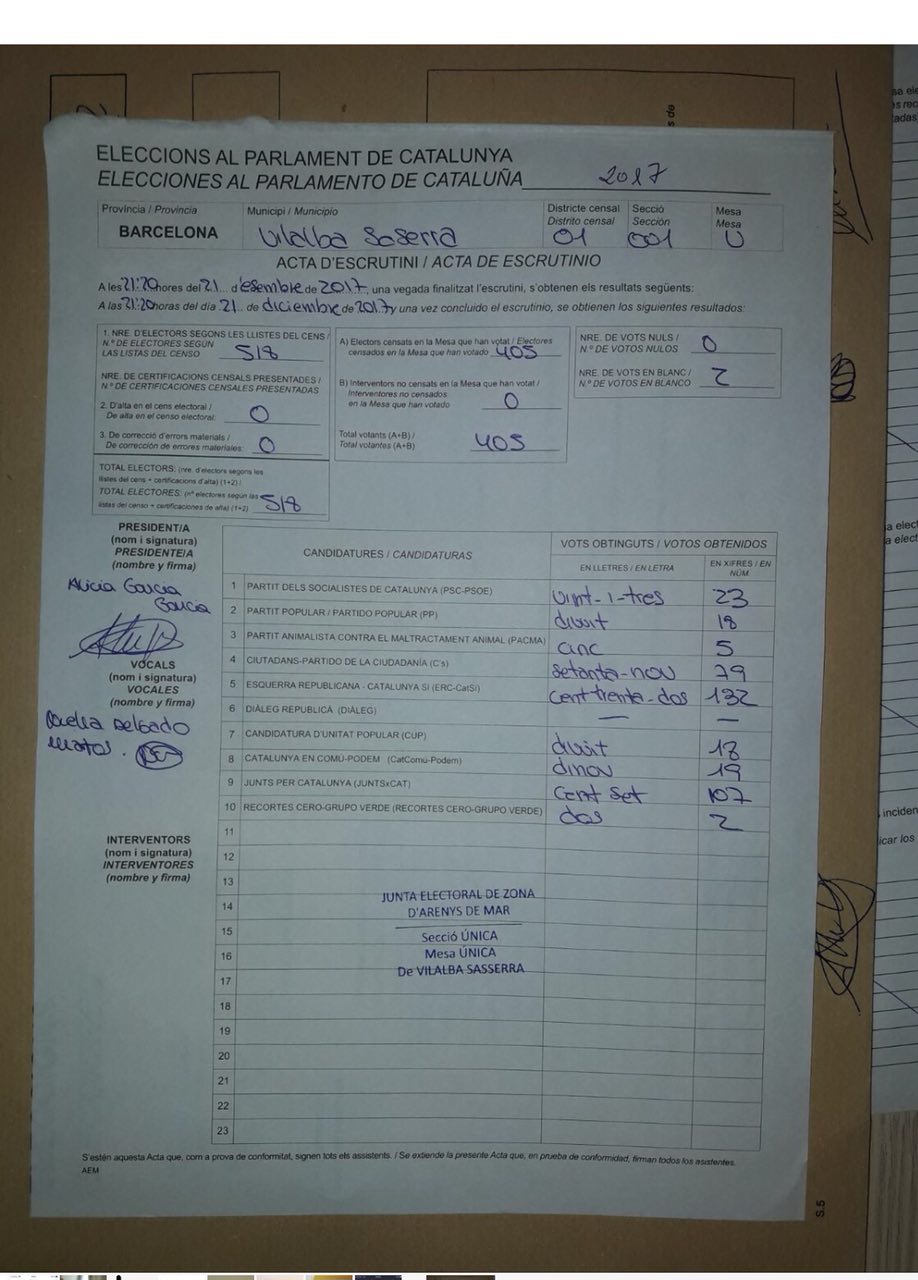 ELECCIONS AL PARLAMENT DE CATALUNYA
ELECCIONES AL PARLAMENTO DE CATALUÑA 2017
Província / Provincia
BARCELONA
Municipi / Municipio
Vilalba Saserra
Districte censal
Distrito censal
01
Secció
Sección
001
Mesa
Mesa
U
ACTA D'ESCRUTINI / ACTA DE ESCRUTINIO
A les 21:20 hores del 21 d'esembre de 2017, una vegada finalitzat l'escrutini, s'obtenen els resultats següents:
A las 21:20 horas del día 21 de diciembre de 2017 y una vez concluido el escrutinio, se obtienen los siguientes resultados:
1. NRE. D'ELECTORS SEGONS LES LLISTES DEL CENS /
N.º DE ELECTORES SEGÚN
LAS LISTAS DEL CENSO 518
NRE. DE CERTIFICACIONS CENSALS PRESENTADES /
N.º DE CERTIFICACIONES CENSALES PRESENTADAS
2. D'alta en el cens electoral /
De alta en el censo electoral: 0
3. De correcció d'errors materials /
De corrección de errores materiales: 0
TOTAL ELECTORS: (nre. d'electors segons les
llistes del cens + certificacions d'alta) (1+2) /
TOTAL ELECTORES: (nº electores según las
listas del censo + certificaciones de alta) (1+2) 518
A) Electors censats en la Mesa que han votat / Electores
censados en la Mesa que han votado 405
B) Interventors no censats en la Mesa que han votat /
Interventores no censados
en la Mesa que han votado 0
Total votants (A+B) /
Total votantes (A+B) 405
NRE. DE VOTS NULS /
N.º DE VOTOS NULOS 0
NRE. DE VOTS EN BLANC /
N.º DE VOTOS EN BLANCO 2
PRESIDENT/A
(nom i signatura)
PRESIDENTE/A
(nombre y firma)
Alicia Garcia
Garcia
VOCALS
(nom i signatura)
VOCALES
(nombre y firma)
Delgado
Matos.
INTERVENTORS
(nom i signatura)
INTERVENTORES
(nombre y firma)
CANDIDATURES / CANDIDATURAS
VOTS OBTINGUTS / VOTOS OBTENIDOS
EN LLETRES / EN LETRA
EN XIFRES / EN
NÚM.
1 PARTIT DELS SOCIALISTES DE CATALUNYA (PSC-PSOE) Vint-i-tres 23
2 PARTIT POPULAR / PARTIDO POPULAR (PP) divuit 18
3 PARTIT ANIMALISTA CONTRA EL MALTRACTAMENT ANIMAL (PACMA) cinc 5
4 CIUTADANS-PARTIDO DE LA CIUDADANÍA (C's) setanta-nou 79
5 ESQUERRA REPUBLICANA - CATALUNYA SI (ERC-CatSí) Cent trenta-dos 132
6 DIÀLEG REPUBLICÀ (DIÀLEG) — —
7 CANDIDATURA D'UNITAT POPULAR (CUP) divuit 18
8 CATALUNYA EN COMÚ-PODEM (CatComú-Podem) dinou 19
9 JUNTS PER CATALUNYA (JUNTSxCAT) Cent set 107
10 RECORTES CERO-GRUPO VERDE (RECORTES CERO-GRUPO VERDE) dos 2
11
12
13
14
15
16
17
18
19
20
21
22
23
JUNTA ELECTORAL DE ZONA
D'ARENYS DE MAR
Secció ÚNICA
Mesa ÚNICA
De VILALBA SASSERRA
S'estén aquesta Acta que, com a prova de conformitat, signen tots els assistents. / Se extiende la presente Acta que, en prueba de conformidad, firman todos los asistentes.
AEM
S.5